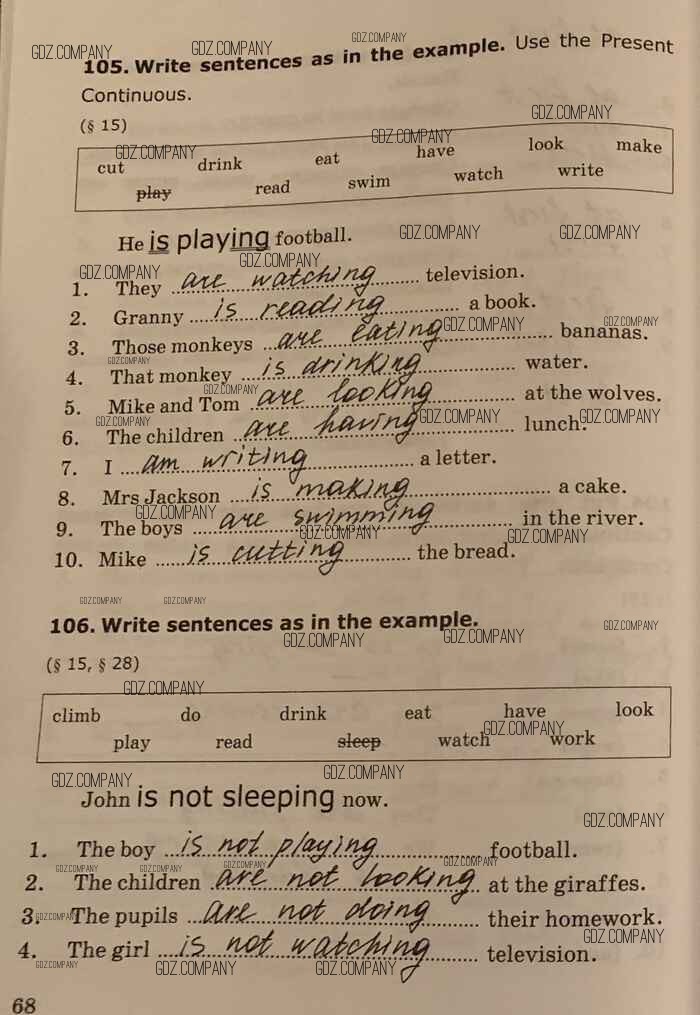 105. Write sentences as in the example. Use the Present
Continuous.
(§ 15)
cut drink eat have look make
play read swim watch write
He is playing football.
1. They are watching television.
2. Granny is reading a book.
3. Those monkeys are eating bananas.
4. That monkey is drinking water.
5. Mike and Tom are looking at the wolves.
6. The children are having lunch.
7. I am writing a letter.
8. Mrs Jackson is making a cake.
9. The boys are swimming in the river.
10. Mike is cutting the bread.
106. Write sentences as in the example.
(§ 15, § 28)
climb do drink eat have look
play read sleep watch work
John is not sleeping now.
1. The boy is not playing football.
2. The children are not looking at the giraffes.
3. The pupils are not doing their homework.
4. The girl is not watching television.
68
GDZ.COMPANY